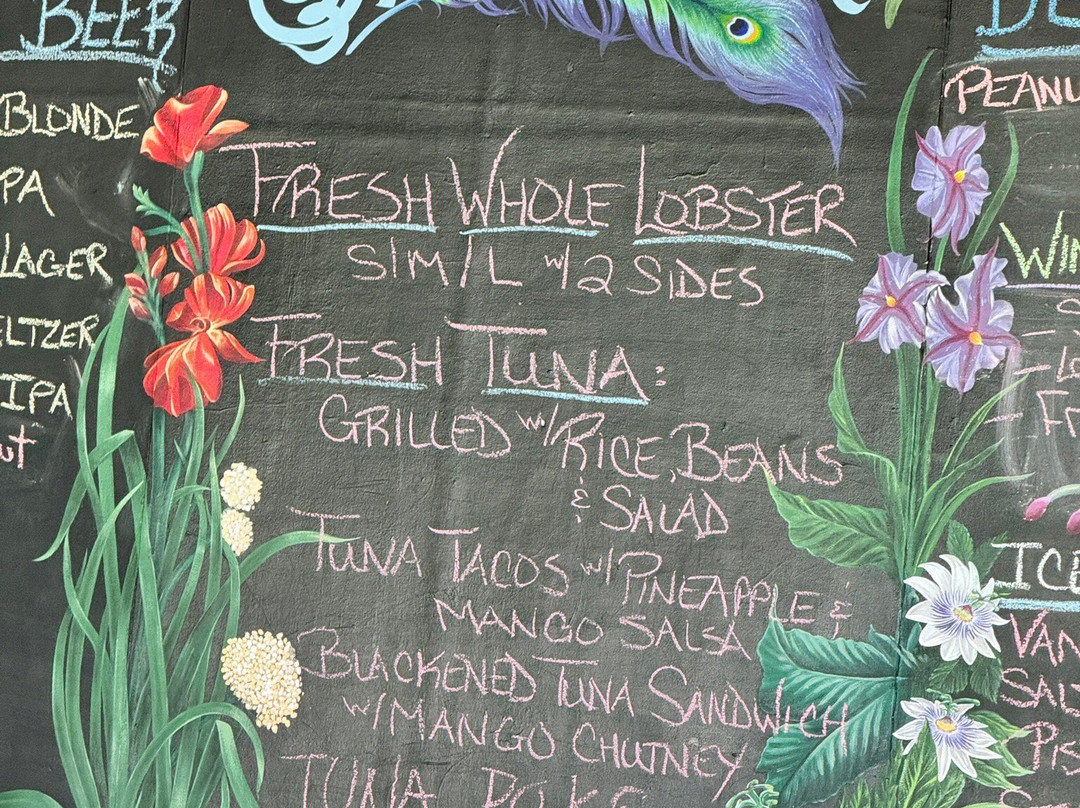 BEER
BLONDE
PA
LAGER
ELTZER
IPA
ut
FRESH WHOLE LOBSTER
S/M/L w/ 2 SIDES
FRESH TUNA:
GRILLED w/ RICE, BEANS
& SALAD
TUNA TACOS w/ PINEAPPLE &
MANGO SALSA
BLACKENED TUNA SANDWICH
w/ MANGO CHUTNEY
TUNA POKE
DE
PEANU
WIN
S
- LO
- FR
ICE
VAN
SAL
PIS